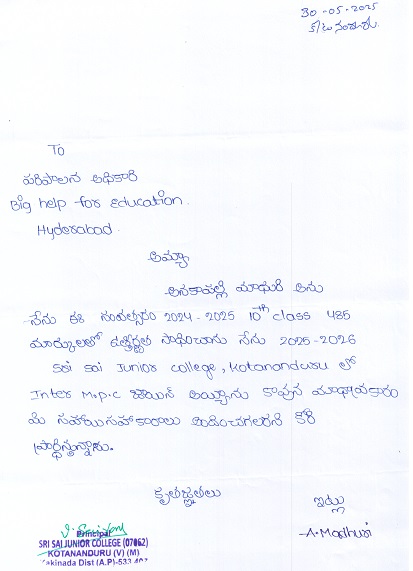 30-05-2025
To
పరిపాలన అధికారి
Big help for Education.
Hyderabad.
అమ్మా
అనకాపల్లి మాధురి అను
నేను ఈ సంవత్సరం 2024-2025 10th class 485
మార్కులలో ఉత్తీర్ణత సాధించాను నేను 2025-2026
Sri Sai Junior college, Kotananduru లో
Inter M.p.c జాయిన్ అయ్యాను కావున
మీ సహాయసహకారాలు అందించగలరని కోరి
ప్రార్థిస్తున్నాను.
కృతజ్ఞతలు
ఇట్లు
-A.Madhuri
Principal
SRI SAI JUNIOR COLLEGE (07062)
KOTANANDURU (V) (M)
Kakinada Dist (A.P)-533 407